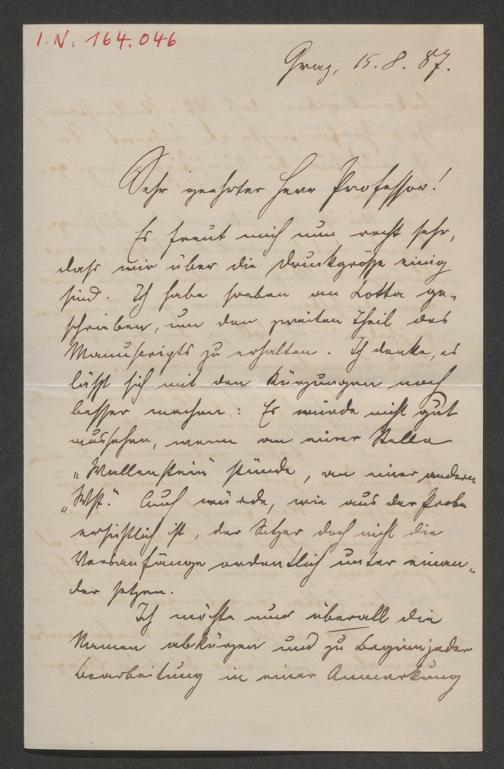 I.N. 164.046
Graz, 15.8.87.
Sehr geehrter Herr Professor!
Es freut mich nun recht sehr,
dass wir über die Druckgrösse einig
sind. Ich habe soeben an Cotta ge-
schrieben, um den zweiten Theil des
Manuscripts zu erhalten. Ich denke, es
lässt sich mit den Kürzungen noch
besser machen: Es würde nicht gut
aussehen, wenn an einer Stelle
„Wallenstein“ stünde, an einer andern
„Wst“. Auch würde, wie aus der Probe
ersichtlich ist, der Setzer doch nicht die
Versanfänge ordentlich unter einan-
der setzen.
Ich möchte nun überall die
Namen abkürzen und zu Beginn jeder
Bearbeitung in einer Anmerkung